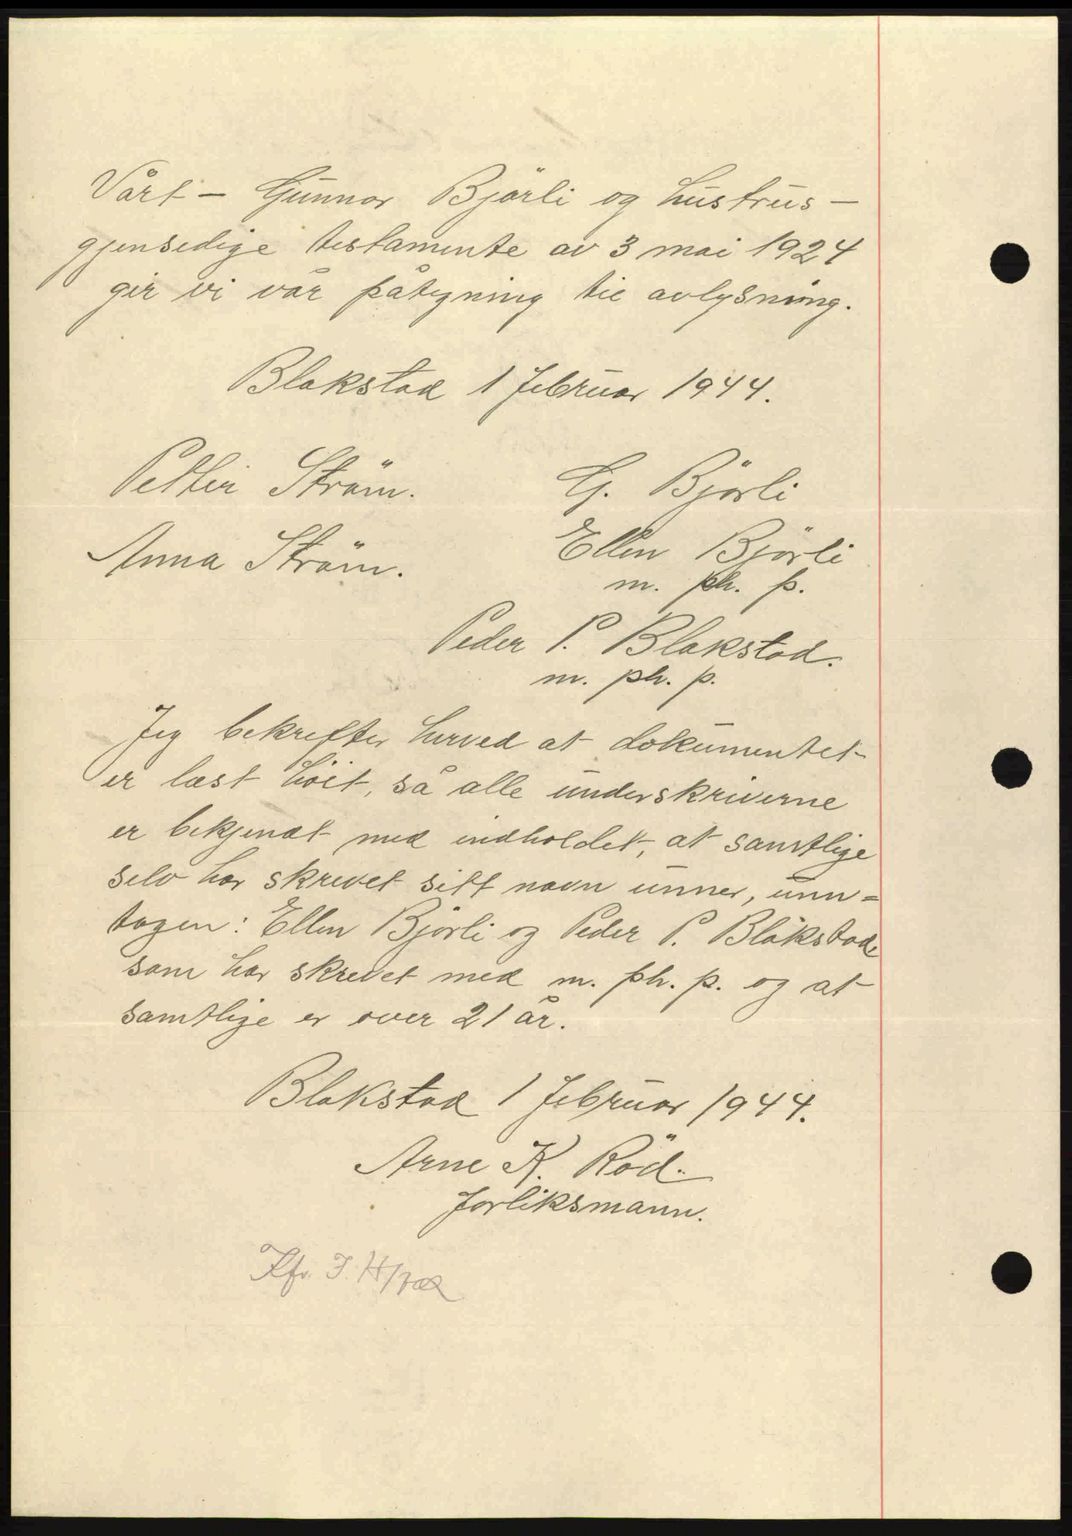 Vårt – Gunnar Björli og hustrus –
gjensedige testamente av 3 mai 1924
gir vi vår påtegning til avlysning.
Blakstad 1 februar 1944.
Petter Ström. G. Björli
Anna Ström. Ellen Björli
m. ph. p.
Peder P. Blakstad.
m. ph. p.
Jeg bekrefter herved at dokumentet
er læst höit, så alle underskriverne
er bekjendt med indholdet, at samtlige
selv har skrevet sitt navn unner, unn=
tagen: Ellen Björli og Peder P. Blakstad,
som har skrevet med m. ph. p. og at
samtlige er over 21 år.
Blakstad 1 februar 1944.
Arne K. Röd.
forliksmann.
Kfr. J.